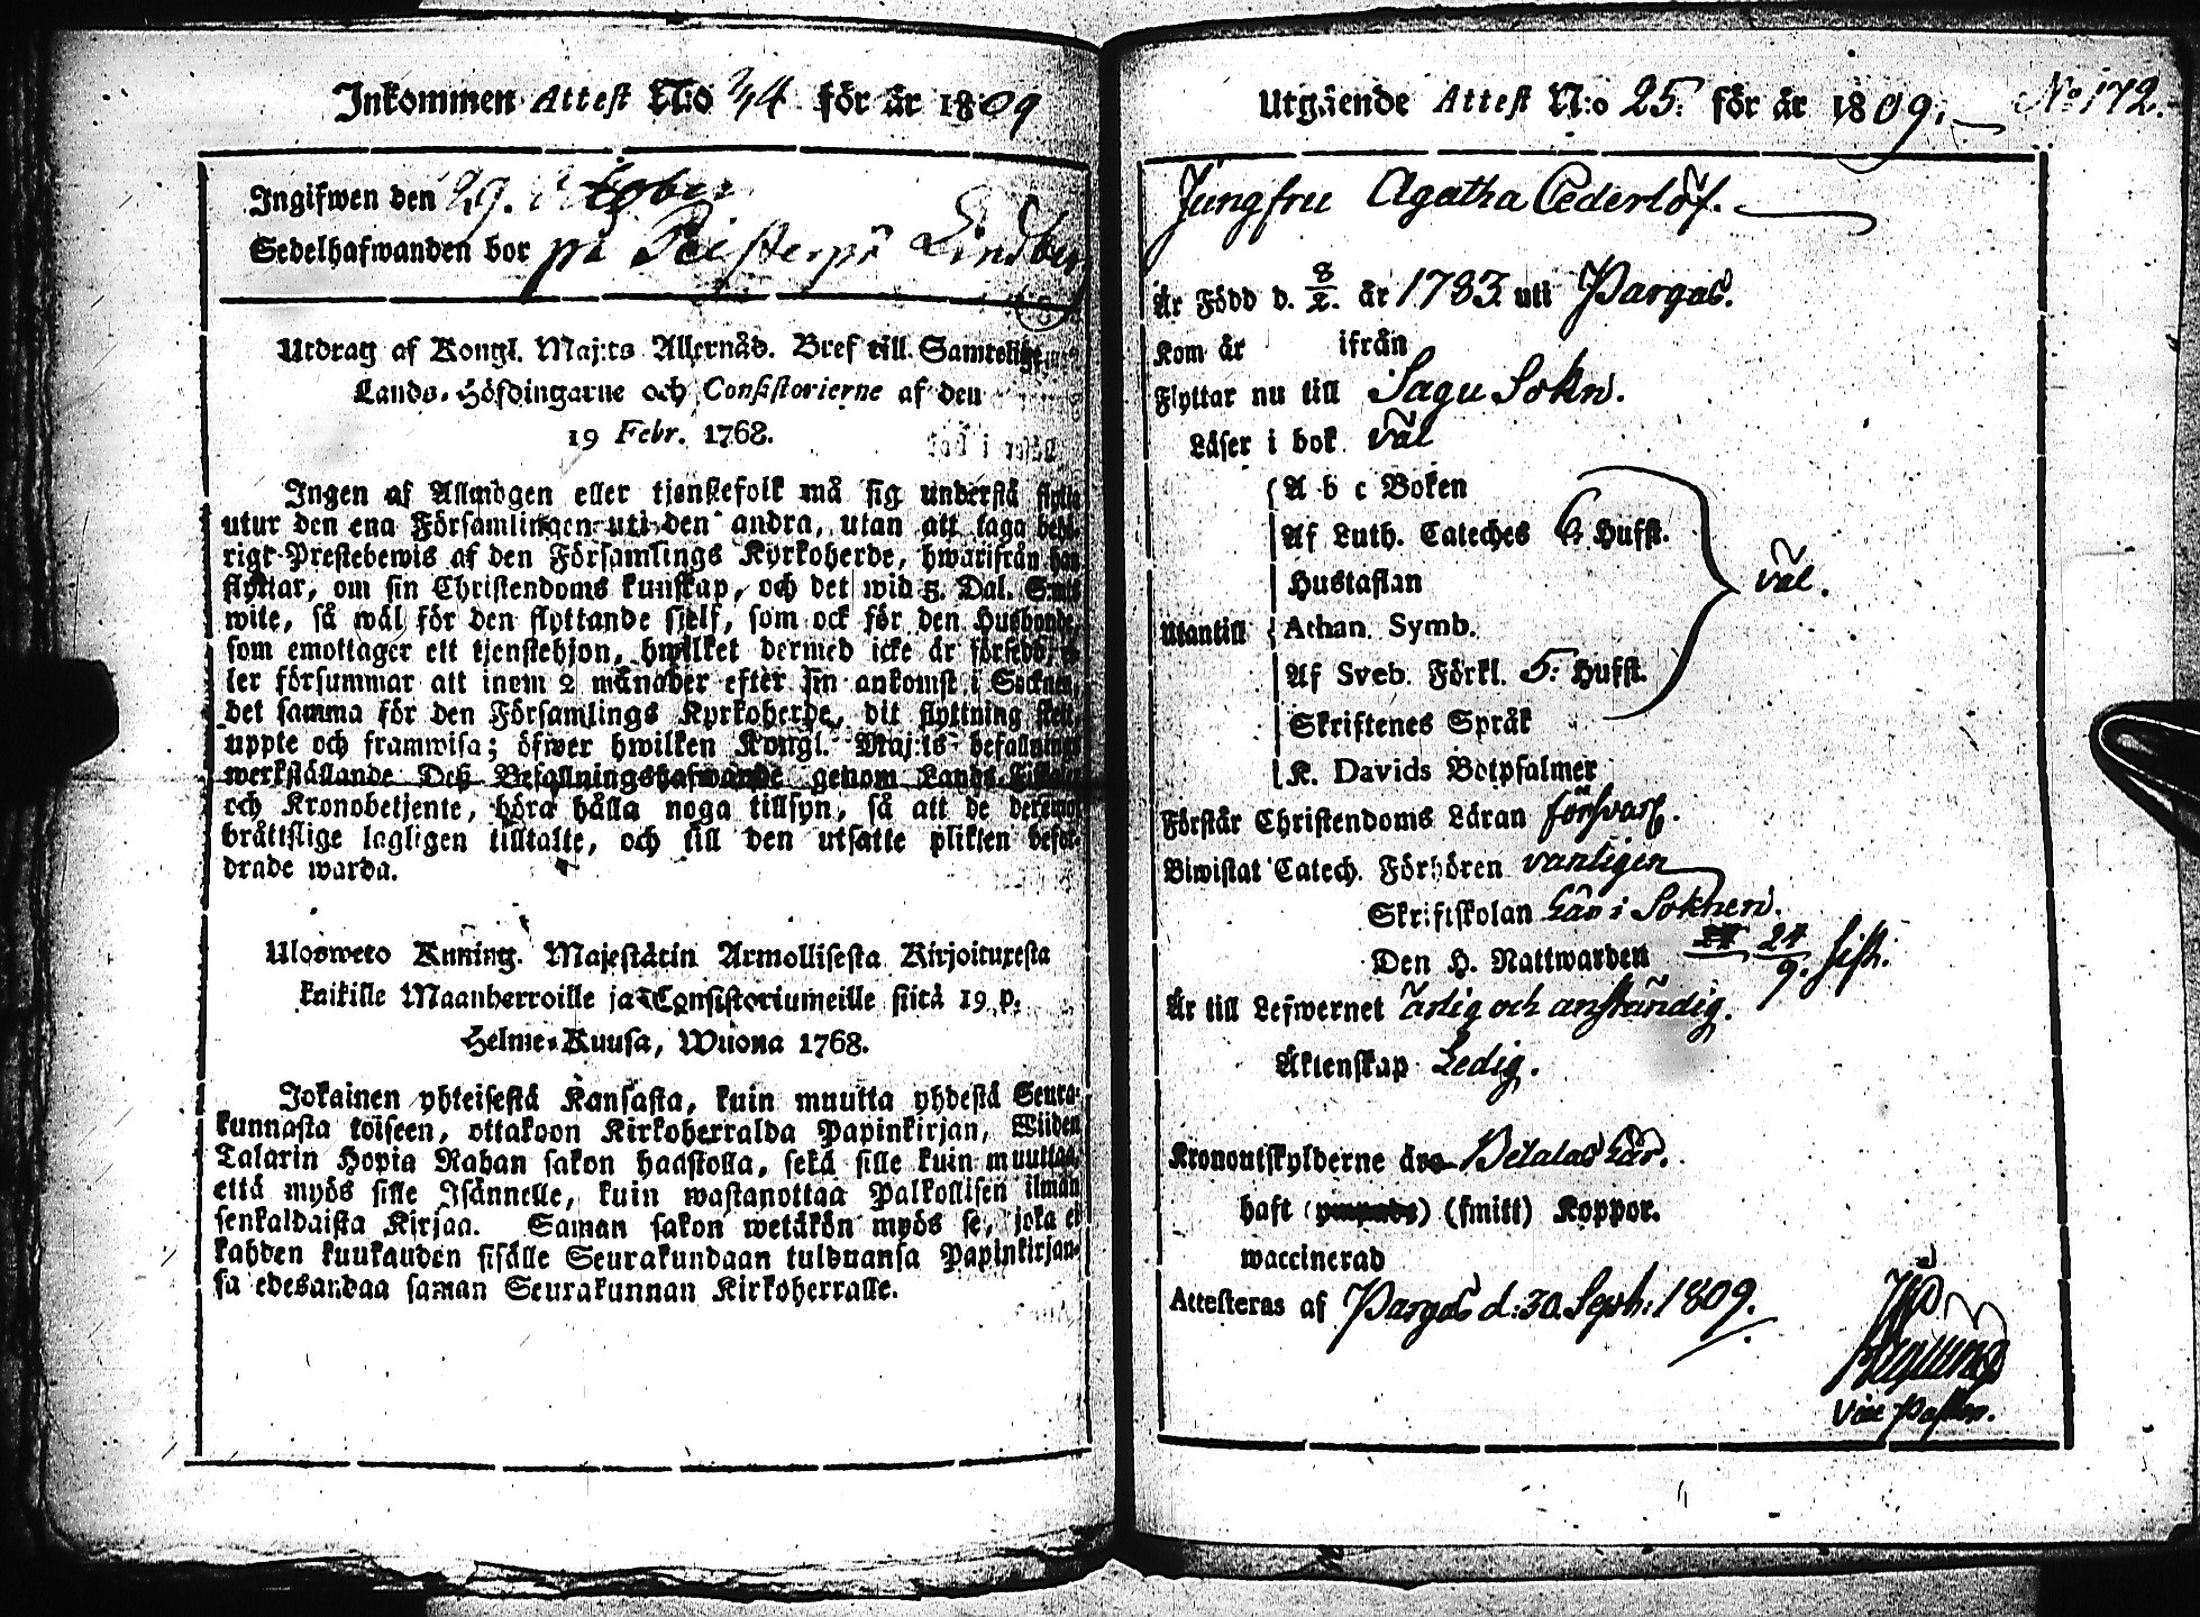 Inkommen Attest N:o 34 för år 1809
Ingifwen den 29. October
Sedelhafwanden bor på
Utdrag af Kongl. Maj:ts Allernåd. Bref till Samtelige
Lands-Höfdingarne och Consistorierne af den
19 Febr. 1768.
Ingen af Allmogen eller tjenstefolk må sig understå flytta
utur den ena Församlingen uti den andra, utan att taga behö-
rigt Prestebewis af den Församlings Kyrkoherde, hwarifrån han
flyttar, om sin Christendoms kunskap, och det wid 5. Dal. S:mts
wite, så wäl för den flyttande sjelf, som ock för den Husbonde,
som emottager ett tjenstehjon, hwilket dermed icke är försedd, el-
ler försummar att inom 2 månader efter sin ankomst i Socknen,
det samma för den Församlings Kyrkoherde, dit flyttning skett,
uppte och framwisa; öfwer hwilken Kongl. Maj:ts befallnings
werkställande Deß Befallningshafwande genom Lands-Fiskaler
och Kronobetjente, böra hålla noga tillsyn, så att de deremot
bråttslige lagligen tilltalte, och till den utsatte plikten befor-
drade warda.
Ulosweto Kuning. Majestätin Armollisesta Kirjoituxesta
kaikille Maanherroille ja Consistoriumeille siitä 19 p.
Helme-Kuusa, Wuona 1768.
Jokainen yhteisestä Kansasta, kuin muutta yhdestä Seura-
kunnasta töiseen, ottakoon Kirkoherralda Papinkirjan, Wiiden
Talarin Hopia Rahan sakon haastolla, sekä sille kuin muuttaa,
että myös sille Isännelle, kuin wastanottaa Palkollisen ilman
senkaldaista Kirjaa. Saman sakon wetäkön myös se, joka ei
kahden kuukauden sisälle Seurakundaan tulduansa Papinkirjan-
sa edesandaa saman Seurakunnan Kirkoherralle.
Utgäende Attest N:o 25. för år 1809. No 172.
Jungfru Agatha Cederlöf.
Är Född d. 8/2. år 1783. uti Pargas.
Kom år ifrån
Flyttar nu till Sagu Sokn.
Läser i bok väl
A b c Boken
Af Luth. Cateches 6 Hufst.
Hustaflan väl.
Utantill Athan. Symb.
Af Sveb. Förkl. 5. Hufst.
Skriftenes Språk
K. Davids Botpsalmer
Förstår Christendoms Läran försvarl.
Biwistat Catech. Förhören vanligen
Skriftskolan här i Soknen.
Den H. Nattwarden 24/9. sist.
Är till Lefwernet ärlig och anständig.
Äktenskap Ledig.
Kronoutskylderne äro Betalas här.
haft (smitt) Koppor.
waccinerad
Attesteras af Pargas d: 30. Sept: 1809.
Vice Pastor.